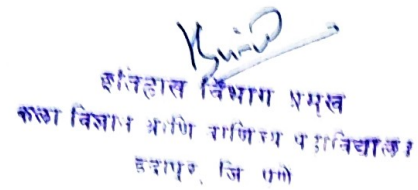 इतिहास विभाग प्रमुख
कला विज्ञान आणि वाणिज्य महाविद्यालय
इंदापूर, जि पुणे